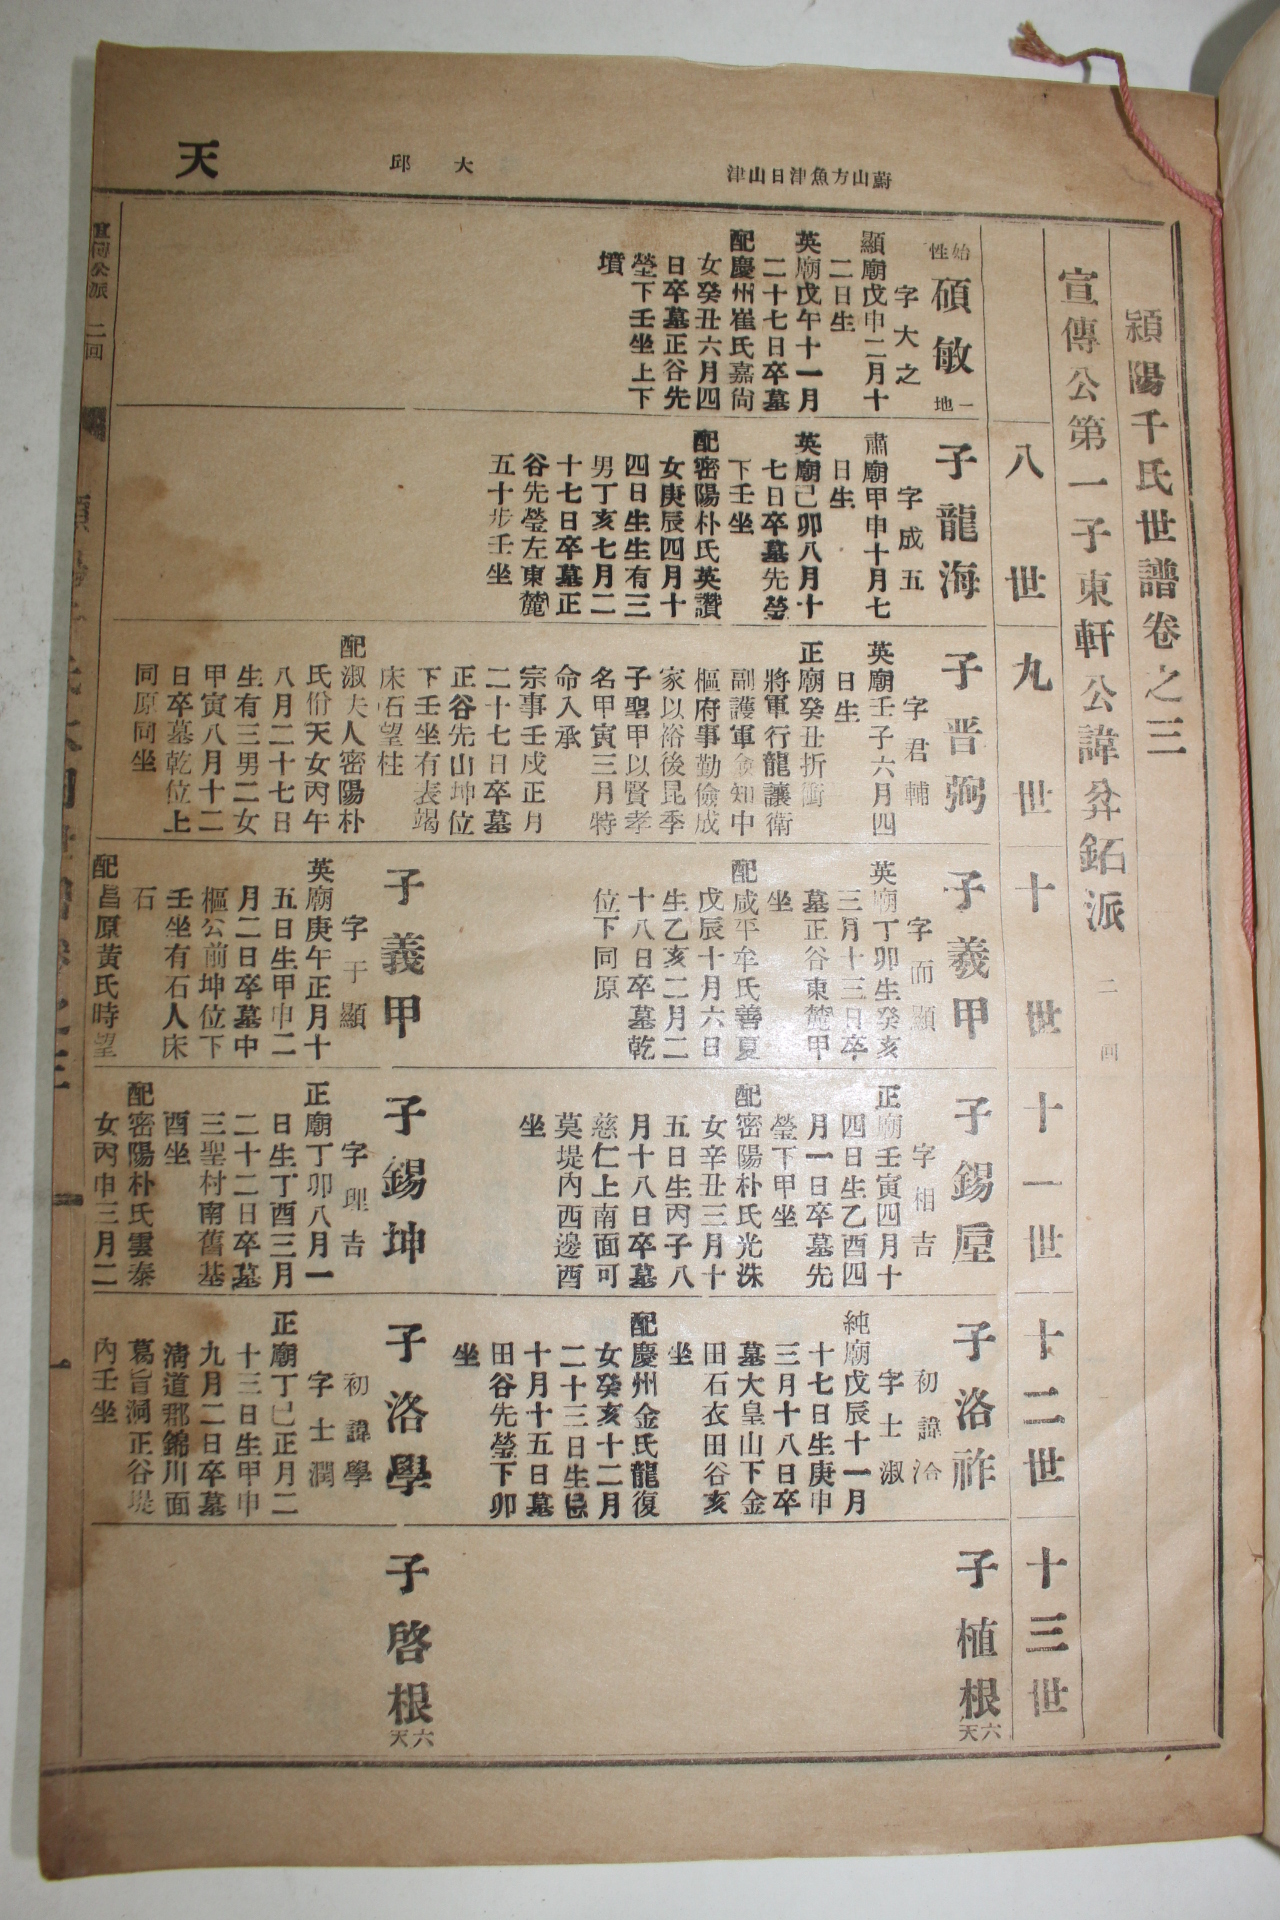 蔚山方魚津日山津
大邱
天
潁陽千氏世譜卷之三
宣傳公第一子東軒公諱弅鉐派 二回
八世
九世
十世
十一世
十二世
十三世
始性
碩敏
一地
字大之
顯廟戊申二月十
二日生
英廟戊午十一月
二十七日卒墓
配慶州崔氏嘉尙
女癸丑六月四
日卒墓正谷先
塋下壬坐上下
墳
子龍海
字成五
肅廟甲申十月七
日生
英廟己卯八月十
七日卒墓先塋
下壬坐
配密陽朴氏英讚
女庚辰四月十
四日生生有三
男丁亥七月二
十七日卒墓正
谷先塋左東麓
五十步壬坐
子晋弼
字君輔
英廟壬子六月四
日生
正廟癸丑折衝
將軍行龍讓衛
副護軍僉知中
樞府事勤儉成
家以裕後昆季
子聖甲以賢孝
名甲寅三月特
命入承
宗事壬戌正月
二十七日卒墓
正谷先山坤位
下壬坐有表竭
床石望柱
配淑夫人密陽朴
氏份天女丙午
八月二十七日
生有三男二女
甲寅八月十二
日卒墓乾位上
同原同坐
子羲甲
字而顯
英廟丁卯生癸亥
三月十三日卒
墓正谷東麓甲
坐
配咸平牟氏善夏
戊辰十月六日
生乙亥二月二
十八日卒墓乾
位下同原
子義甲
字于顯
英廟庚午正月十
五日生甲申二
月二日卒墓中
樞公前坤位下
壬坐有石人床
石
配昌原黃氏時望
子錫垕
字相吉
正廟壬寅四月十
四日生乙酉四
月一日卒墓先
塋下甲坐
配密陽朴氏光洙
女辛丑三月十
五日生丙子八
月十八日卒墓
慈仁上南面可
莫堤內西邊酉
坐
子錫坤
字理吉
正廟丁卯八月一
日生丁酉三月
二十二日卒墓
三聖村南舊基
酉坐
配密陽朴氏雲泰
女丙申三月二
子洛祚
初諱洽
字士淑
純廟戊辰十一月
十七日生庚申
三月十八日卒
墓大皇山下金
田石衣田谷亥
坐
配慶州金氏龍復
女癸亥十二月
二十三日生忌
十月十五日墓
田谷先塋下卯
坐
子洛學
初諱學
字士潤
正廟丁巳正月二
十三日生甲申
九月二日卒墓
淸道郡錦川面
葛旨洞正谷堤
內壬坐
子植根
六天
子啓根
六天
宣傳公派 二回